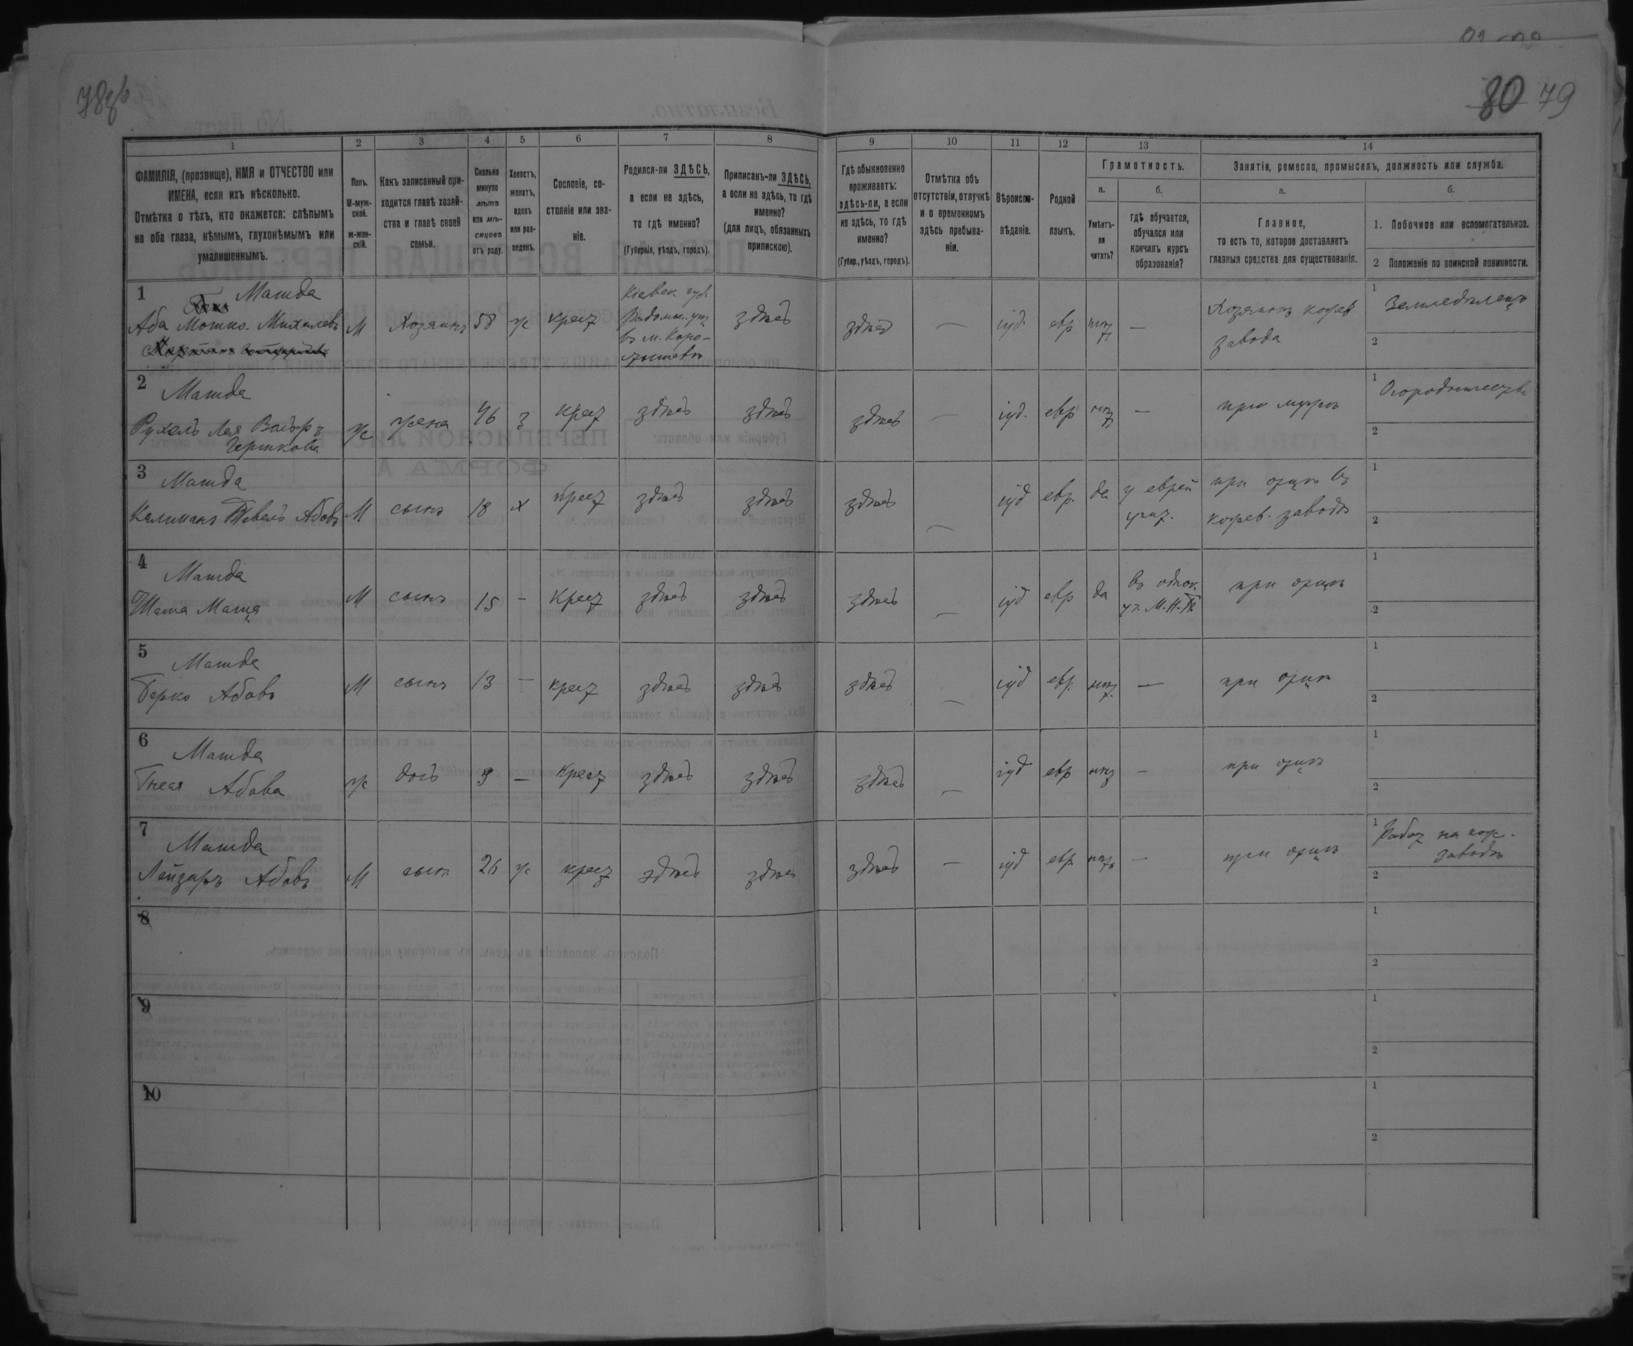 78об
80 79
1
2
3
4
5
6
7
8
9
10
11
12
13
14
ФАМИЛІЯ, (прозвище), ИМЯ и ОТЧЕСТВО или
ИМЕНА, если ихъ нѣсколько.
Отмѣтка о тѣхъ, кто окажется: слѣпымъ
на оба глаза, нѣмымъ, глухонѣмымъ или
умалишеннымъ.
Полъ.
М-муж-
ской.
Ж-жен-
скій.
Какъ записанный при-
ходится главѣ хозяй-
ства и главѣ своей
семьи.
Сколько
минуло
лѣтъ
или мѣ-
сяцевъ
отъ роду.
Холостъ,
женатъ,
вдовъ
или раз-
веденъ.
Сословіе, со-
стояніе или зва-
ніе.
Родился-ли ЗДѢСЬ,
а если не здѣсь,
то гдѣ именно?
(Губернія, уѣздъ, городъ).
Приписанъ-ли ЗДѢСЬ,
а если не здѣсь, то гдѣ
именно?
(для лицъ, обязанныхъ
припискою).
Гдѣ обыкновенно
проживаетъ:
здѣсь-ли, а если
не здѣсь, то гдѣ
именно?
(Губер., уѣздъ, городъ).
Отмѣтка объ
отсутствіи, отлучкѣ
и о временномъ
здѣсь пребыва-
ніи.
Вѣроиспо-
вѣданіе.
Родной
языкъ.
Грамотность.
а.
б.
Умѣетъ-
ли
читать?
гдѣ обучается,
обучался или
кончилъ курсъ
образованія?
Занятія, ремесло, промыселъ, должность или служба.
а.
б.
Главное,
то есть то, которое доставляетъ
главныя средства для существованія.
1. Побочное или вспомогательное.
2 Положеніе по воинской повинности.
1
Машда
Аба Мошко. Михелевъ
М Хозяинъ 58 ж крест
Кіевск губ.
Радомы. уез
въ м. Коро-
стышевъ
здѣсь здѣсь — іуд евр нетъ —
Хозяинъ кожев
завода
1 Земледѣлецъ
2
2 Машда
Рухель Лея
Гершкова
ж жена 46 з крест здѣсь здѣсь здѣсь — іуд. евр нет —
при мужѣ
1
2
3 Машда
Калиманъ Абовъ
М сынъ 18 х крест здѣсь здѣсь здѣсь — іуд евр. да
у еврей
учит.
при отцѣ въ
кожев. заводѣ
1
2
4 Машда
М сынъ 15 — крест здѣсь здѣсь здѣсь — іуд евр да
уч. М.Н.П
при отцѣ
1
2
5 Машда
Берко Абовъ
М сынъ 13 — крест здѣсь здѣсь здѣсь — іуд евр. нет. —
при отцѣ
1
2
6 Машда
Гнеся Абова
ж дочь 9 — крест здѣсь здѣсь здѣсь — іуд евр нет —
при отцѣ
1
2
7 Машда
Лейзоръ Абовъ
М сынъ 26 ж крест здѣсь здѣсь здѣсь — іуд евр нетъ —
при отцѣ
1 Работ на кож.
заводѣ
2
8
1
2
9
1
2
10
1
2